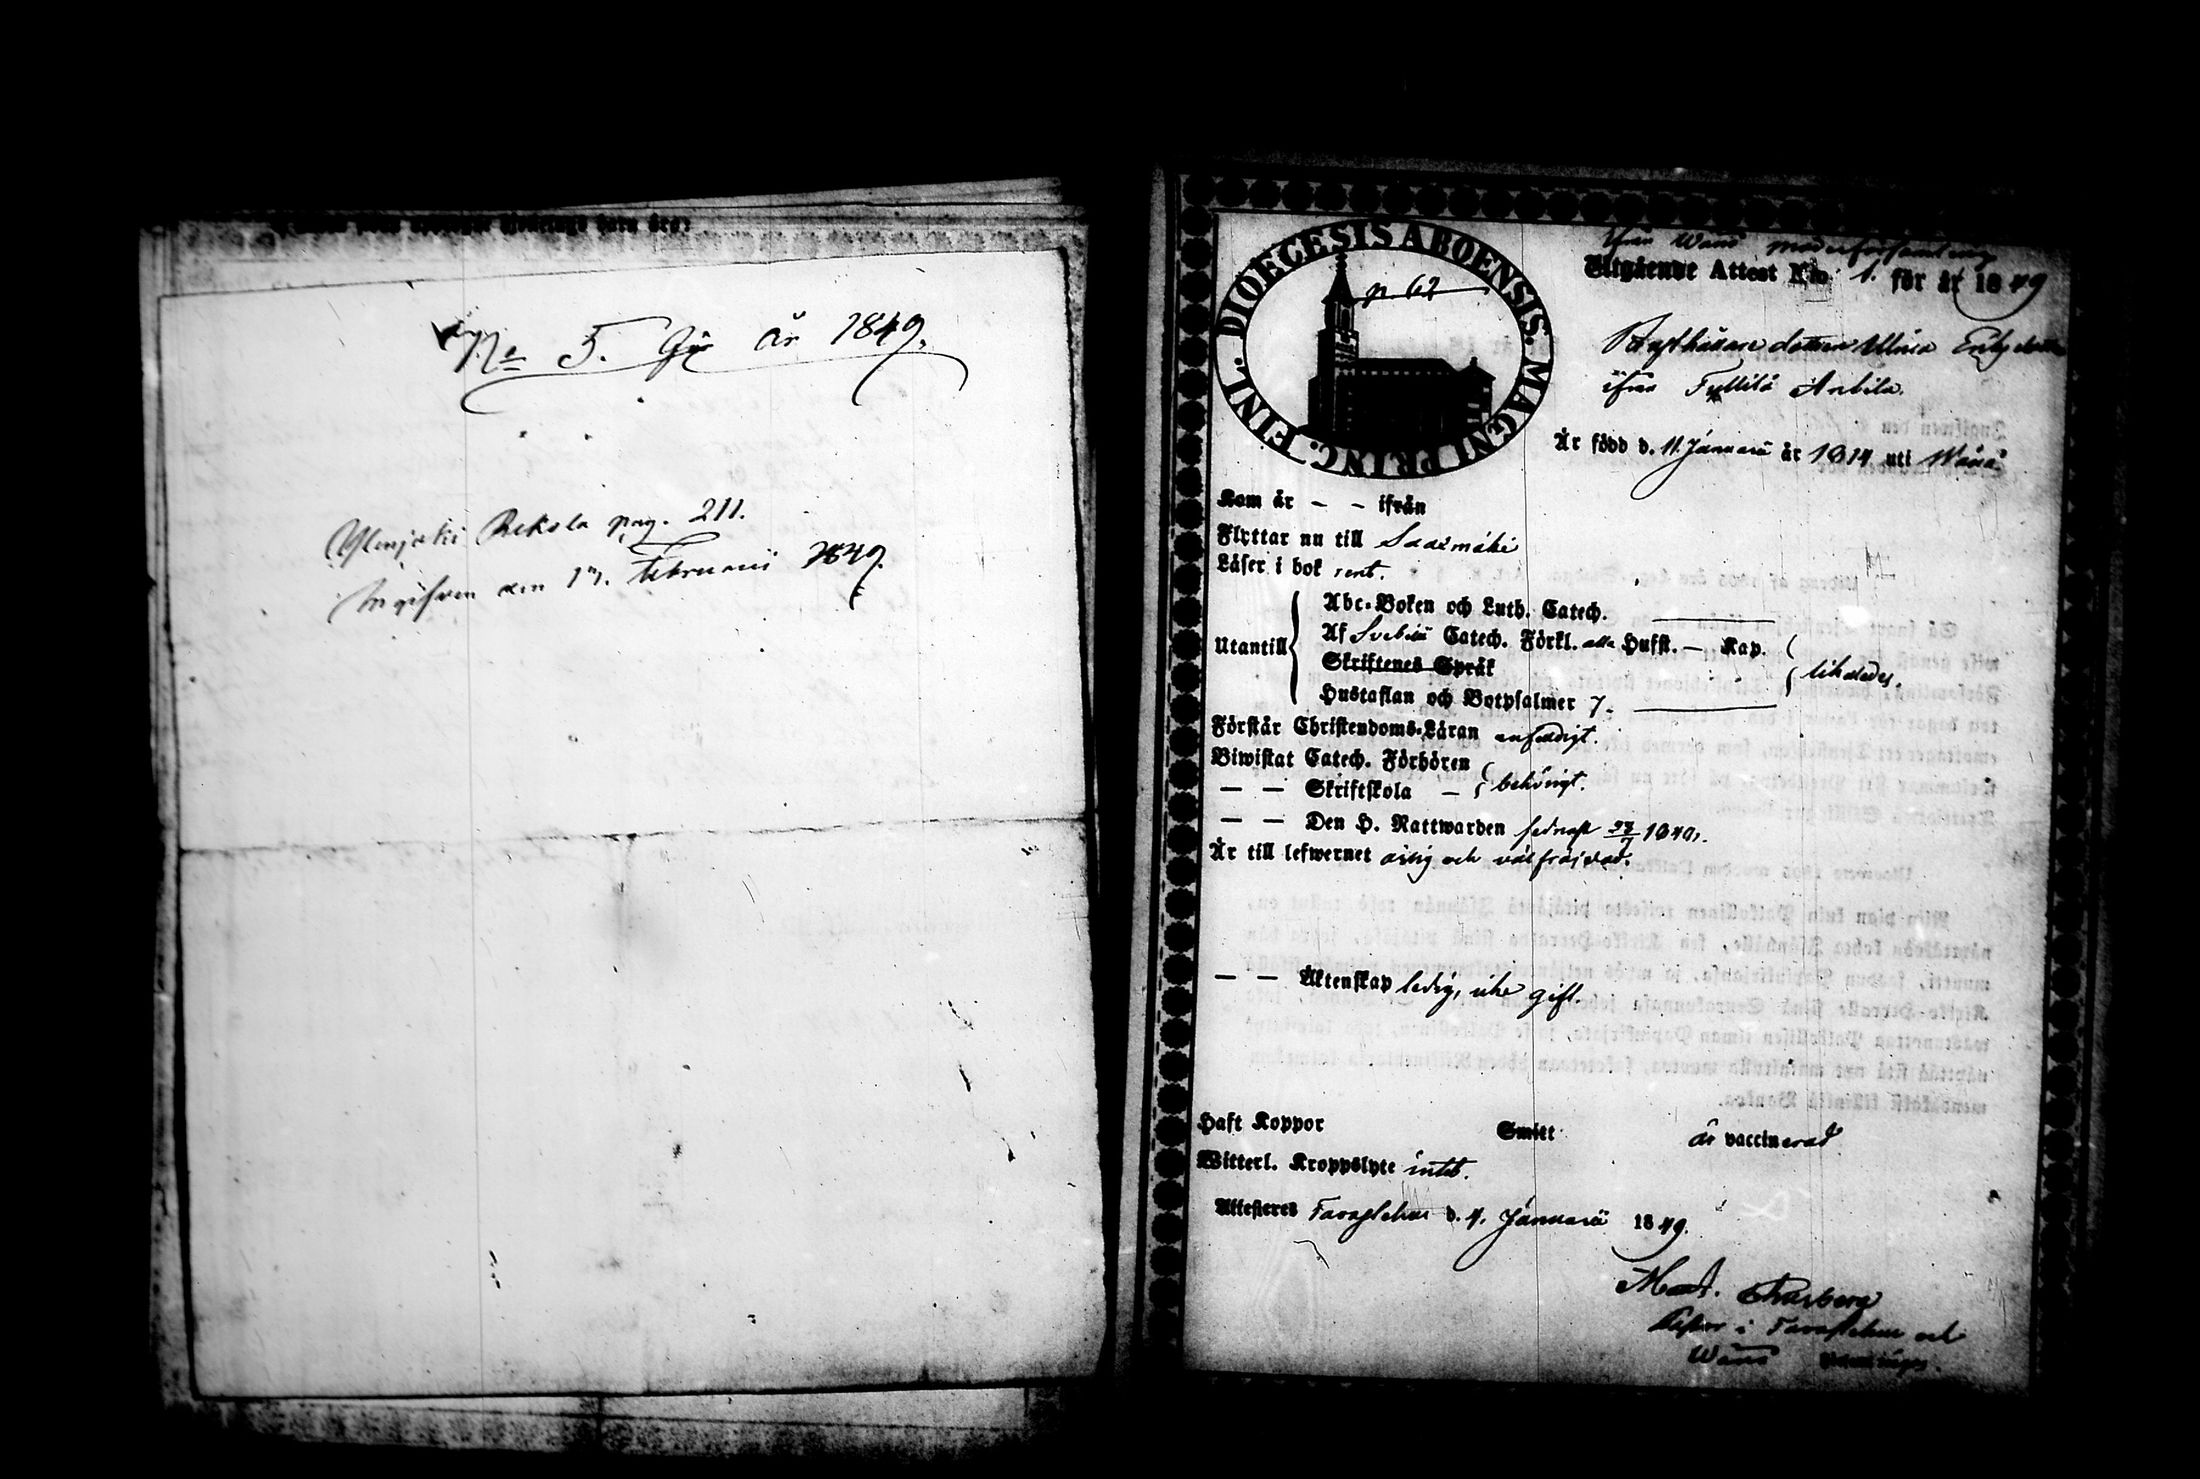 No 5. för år 1849.
Ylenjoki Rekola pag. 211.
Ingifven den 17. Februarii 1849.
DIOECESIS ABOENSIS. MAGNI PRINC. FINL.
p. 62
ifrån Wånå moderförsamling
Utgående Attest N:o 1. för år 1849
Rusthållare dottren Ulrica
ifrån Anbila.
Är född d. 11 Januarii år 1814 uti Wånå.
Kom år - - ifrån
Flyttar nu till Saarimäki
Läser i bok rent.
Utantill
Abc-Boken och Luth. Catech.
Af Svebilii Catech. Förkl. alla Hufst. — Kap.
Skriftenes Språk
likaledes.
Hustaflan och Botpsalmer 7.
Förstår Christendoms-Läran enfaldigt.
Biwistat Catech. Förhören
— — Skriftskola —
behörigt.
— — Den H. Nattwarden sednast
Är till lefwernet ärlig och välfräjdad.
— — Äktenskap ledig, icke gift.
Haft Koppor Smitt är vaccinerad
Witterl. Kroppslyte intet.
Attesteres Tavastehus d. 4. Januarii 1849.
Pastor i Tavastehus och
Wånå